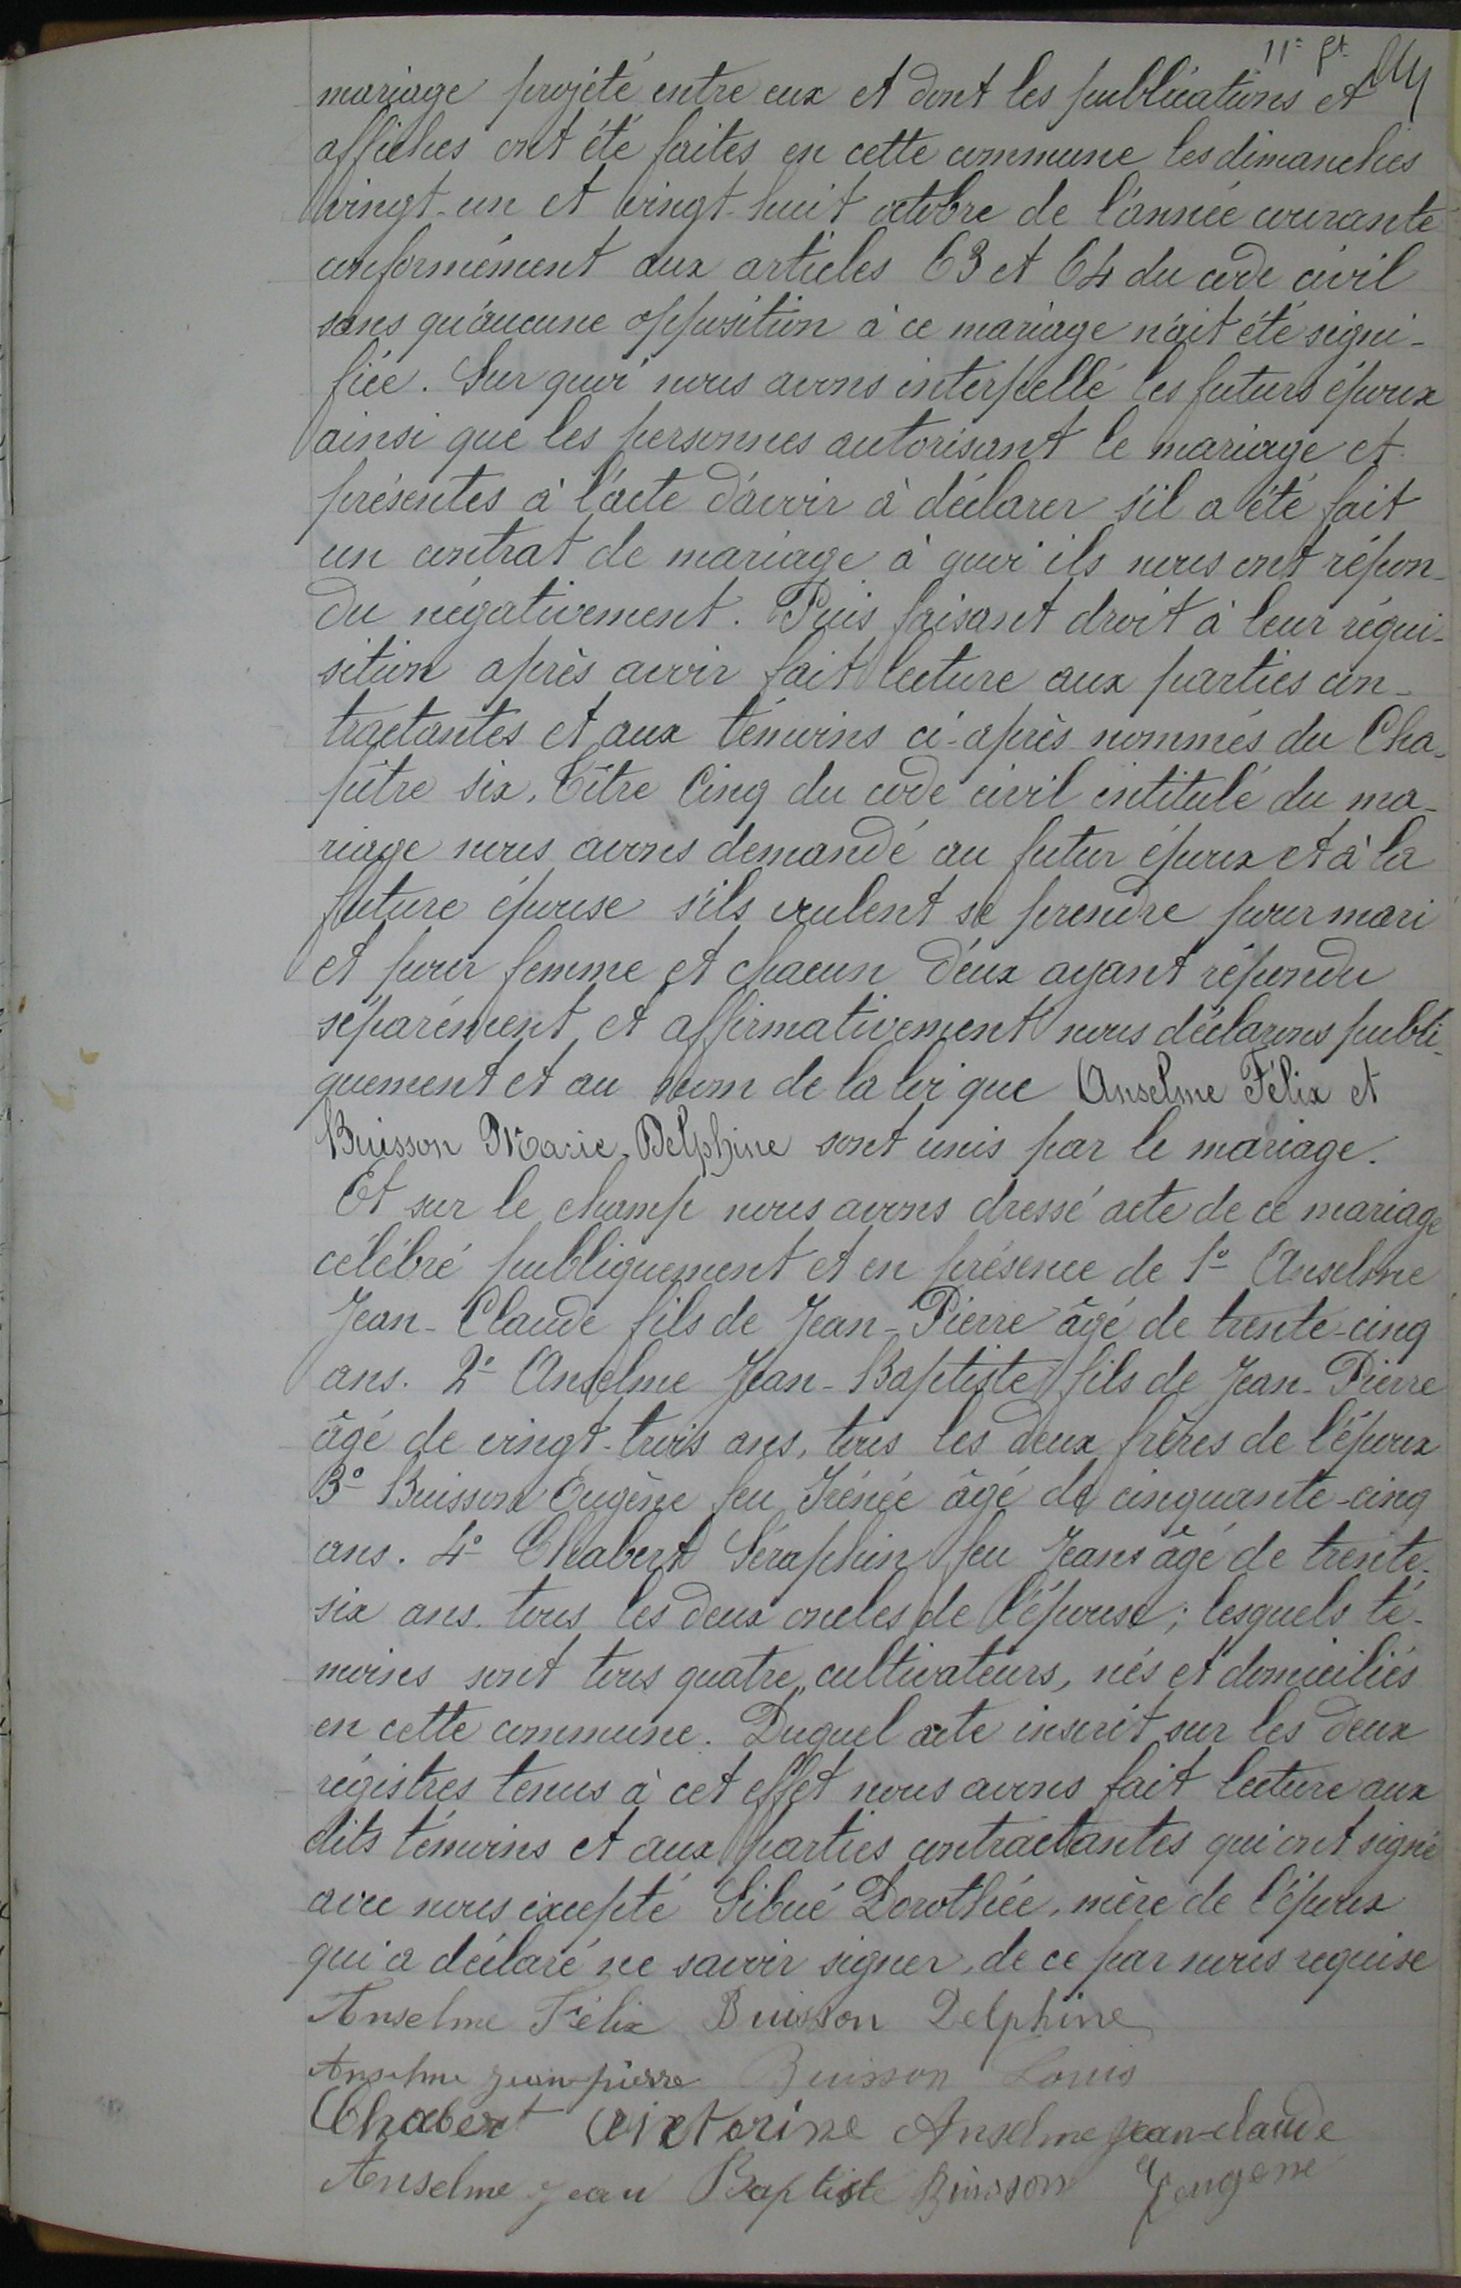 11e ft.
mariage projeté entre eux et dont les publications et
affiches ont été faites en cette commune les dimanches
vingt-un et vingt-huit octobre de l'année courante
conformément aux articles 63 et 64 du code civil
sans qu'aucune opposition à ce mariage n'ait été signi-
fiée. Sur quoi nous avons interpellé les futurs époux
ainsi que les personnes autorisant le mariage et
présentes à l'acte d'avoir à déclarer s'il a été fait
un contrat de mariage à quoi ils nous ont répon-
du négativement. Puis faisant droit à leur réqui-
sition après avoir fait lecture aux parties con-
tractantes et aux témoins ci-après nommés du Cha-
pitre six, Titre Cinq du code civil intitulé du ma-
riage nous avons demandé au futur époux et à la
future épouse s'ils veulent se prendre pour mari
et pour femme et chacun d'eux ayant répondu
séparément et affirmativement nous déclarons publi-
quement et au nom de la loi que Anselme Félix et
Buisson Marie-Delphine sont unis par le mariage.
Et sur le champ nous avons dressé acte de ce mariage
célébré publiquement et en présence de 1º Anselme
Jean-Claude fils de Jean-Pierre âgé de trente-cinq
ans. 2º Anselme Jean-Baptiste fils de Jean-Pierre
âgé de vingt-trois ans, tous les deux frères de l'époux
3º Buisson Eugène feu Irénée âgé de cinquante-cinq
ans. 4º Chabert Séraphin feu Jean âgé de trente-
six ans. tous les deux oncles de l'épouse; lesquels té-
moins sont tous quatre cultivateurs, nés et domiciliés
en cette commune. Duquel acte inscrit sur les deux
régistres tenus à cet effet nous avons fait lecture aux
dits témoins et aux parties contractantes qui ont signé
avec nous excepté Sibué Dorothée, mère de l'époux
qui a déclaré ne savoir signer, de ce par nous requise
Anselme Félix Buisson Delphine
Anselme jean-pierre Buisson Louis
Chabert Victorine Anselme jean-claude
Anselme jean Baptiste Buisson Eugene